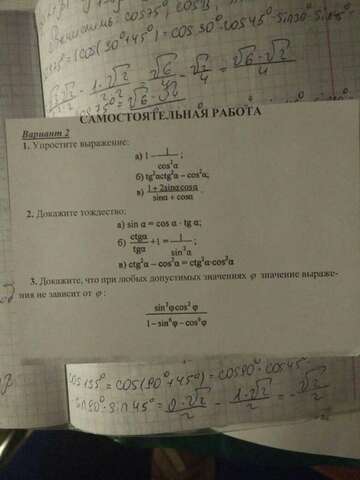 Вычислить: cos75°, cos15°,
cos75° = cos(30°+45°) = cos30°·cos45° - sin30°·sin45° =
√3·√2/2·2 - 1·√2/2·2 = √6/4 - √2/4 = √6-√2/4
САМОСТОЯТЕЛЬНАЯ РАБОТА
Вариант 2
1. Упростите выражение:
а) 1 – 1/cos²α ;
б) tg²αctg²α – cos²α;
в) 1 + 2sinα cosα / sinα + cosα
2. Докажите тождество:
а) sin α = cos α · tg α;
б) ctgα/tgα +1 = 1/sin²α ;
в) ctg²α – cos²α = ctg²α·cos²α
3. Докажите, что при любых допустимых значениях φ значение выраже-
ния не зависит от φ :
sin²φcos²φ
1 – sin⁶φ – cos⁶φ
cos135° = cos(90°+45°) = cos90°·cos45° -
sin90°·sin45° = 0·√2/2 - 1·√2/2 = -√2/2